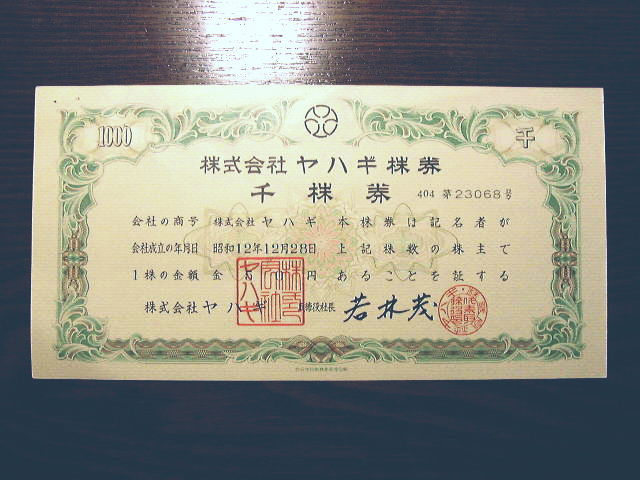 1000 千
株式会社ヤハギ株券
千株券 404 第23068号
会社の商号 株式会社ヤハギ 本株券は記名者が
会社成立の年月日 昭和12年12月28日 上記株数の株主で
1株の金額 金 円 あることを証する
株式会社ヤハギ 取締役社長 若林茂